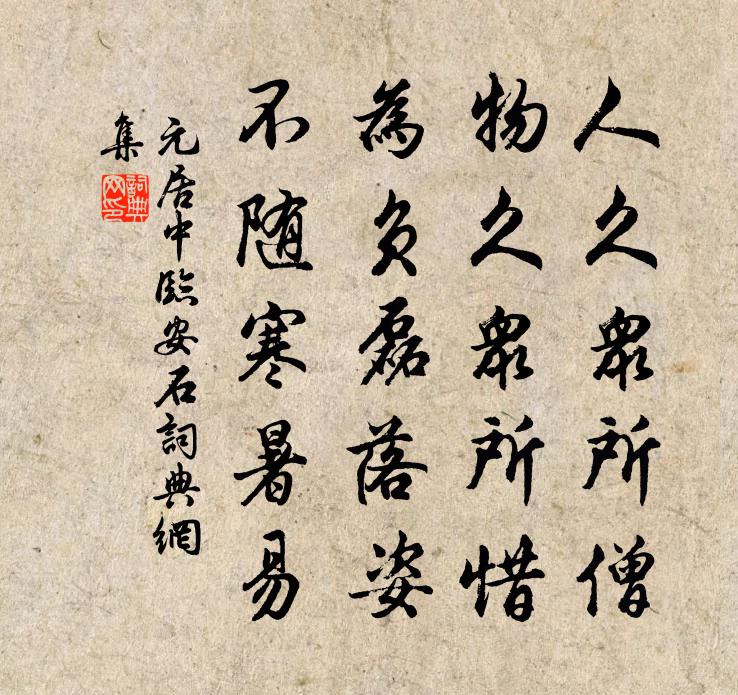 人久眾所僧
物久眾所惜
為負磊落姿
不随寒暑易
元居中臨安石詞典網
集
詞典
网印